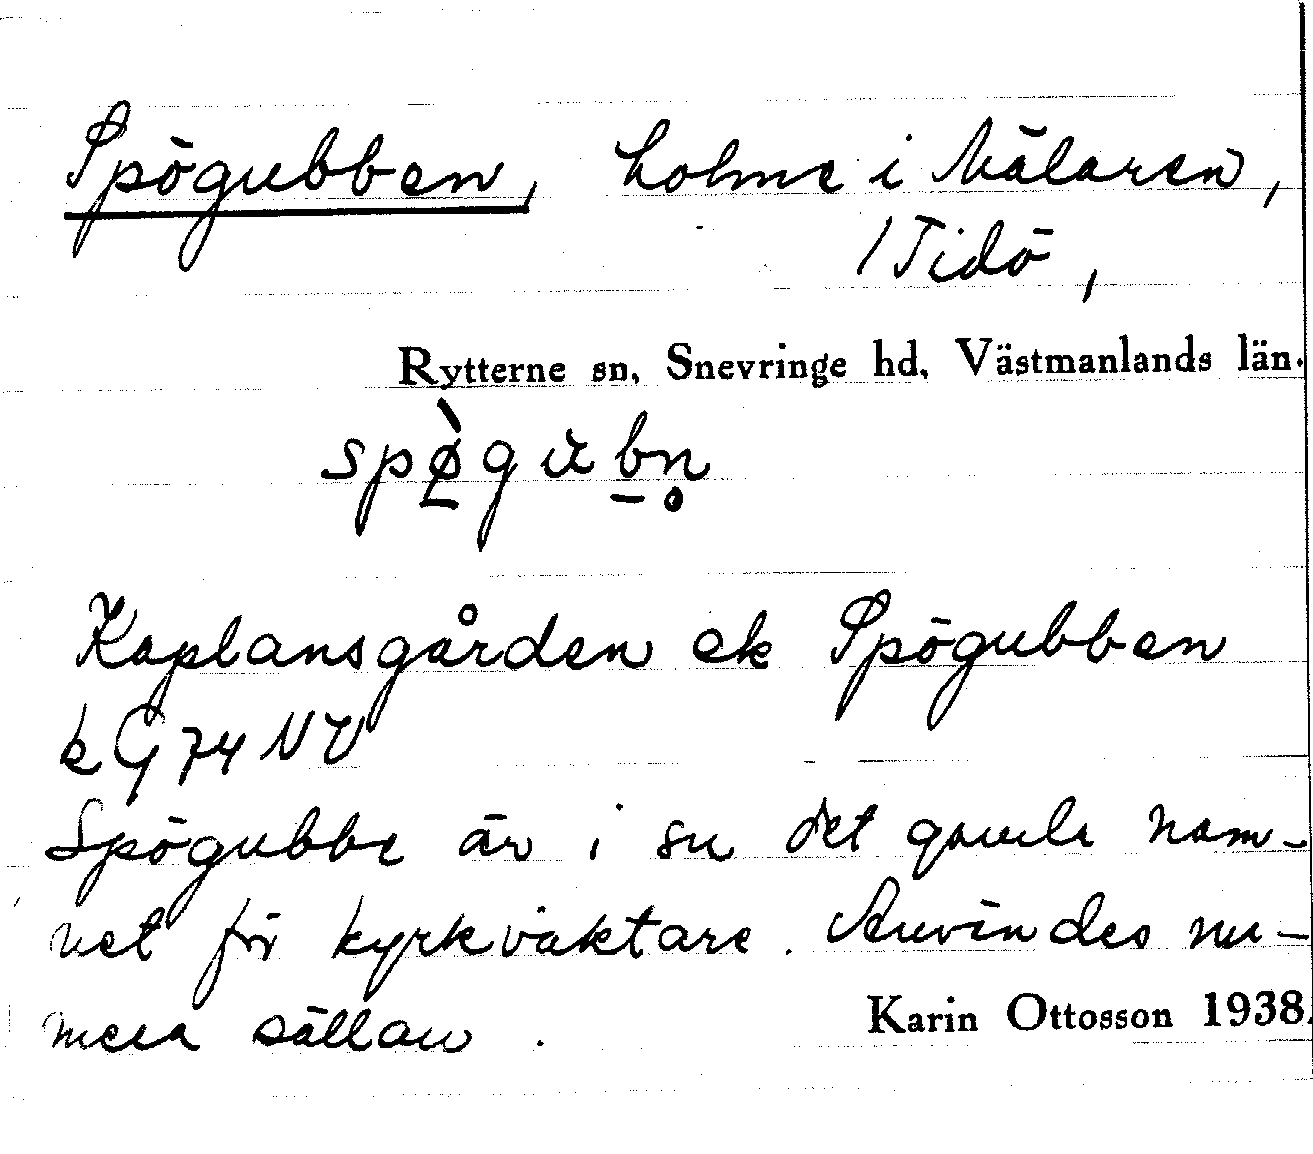 Spögubben, holme i Mälaren,
/Tidö,
Rytterne sn, Snevringe hd, Västmanlands län.
spø̀gubn̥
Kaplansgården ek Spögubben
kG74NV
Spögubbe är i sn det gamla nam-
net för kyrkväktare. Användes nu-
mera sällan.
Karin Ottosson 1938.